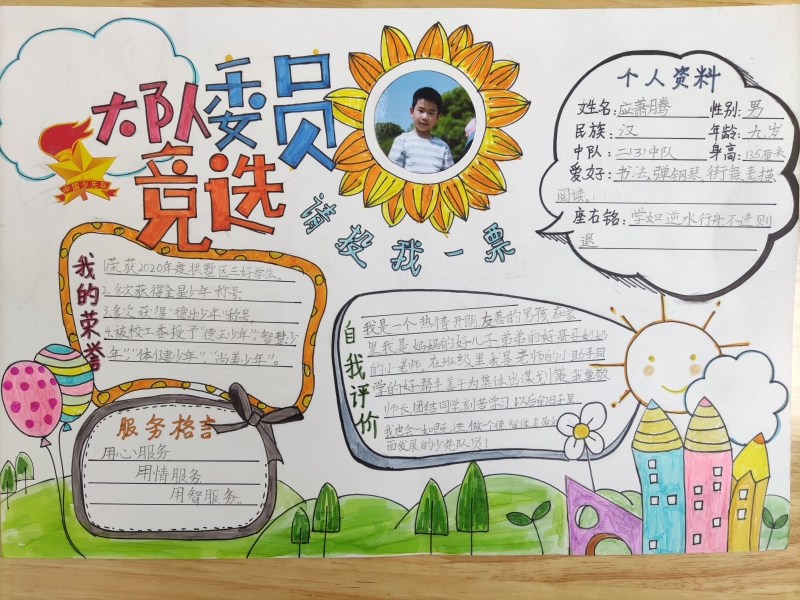 大队委员
竞选
中国少先队
请投我一票
个人资料
姓名:应萧腾 性别:男
民族:汉 年龄:九岁
中队:二(3)中队 身高:135厘米
爱好:书法、弹钢琴、街舞、素描、
阅读、
座右铭:学如逆水行舟不进则
退
我的荣誉
1.荣获2020年度拱墅区三好学生、
2.多次获得"全星少年"称号
3.多次获得"德出少年"称号
4.被校工委授予"德正少年"、"智慧少
年"、"体健少年"、"尚美少年"。
自我评价
我是一个热情开朗友善的男孩在家
里我是妈妈的好儿子弟弟的好哥哥奶奶
的小老师.在班级里我是老师的小助手同
学的好帮手善于为集体出谋划策.我尊敬
师长团结同学刻苦学习以后的日子里
我也会一如既
面发展的少先队员!
服务格言
用心服务
用情服务
用智服务。